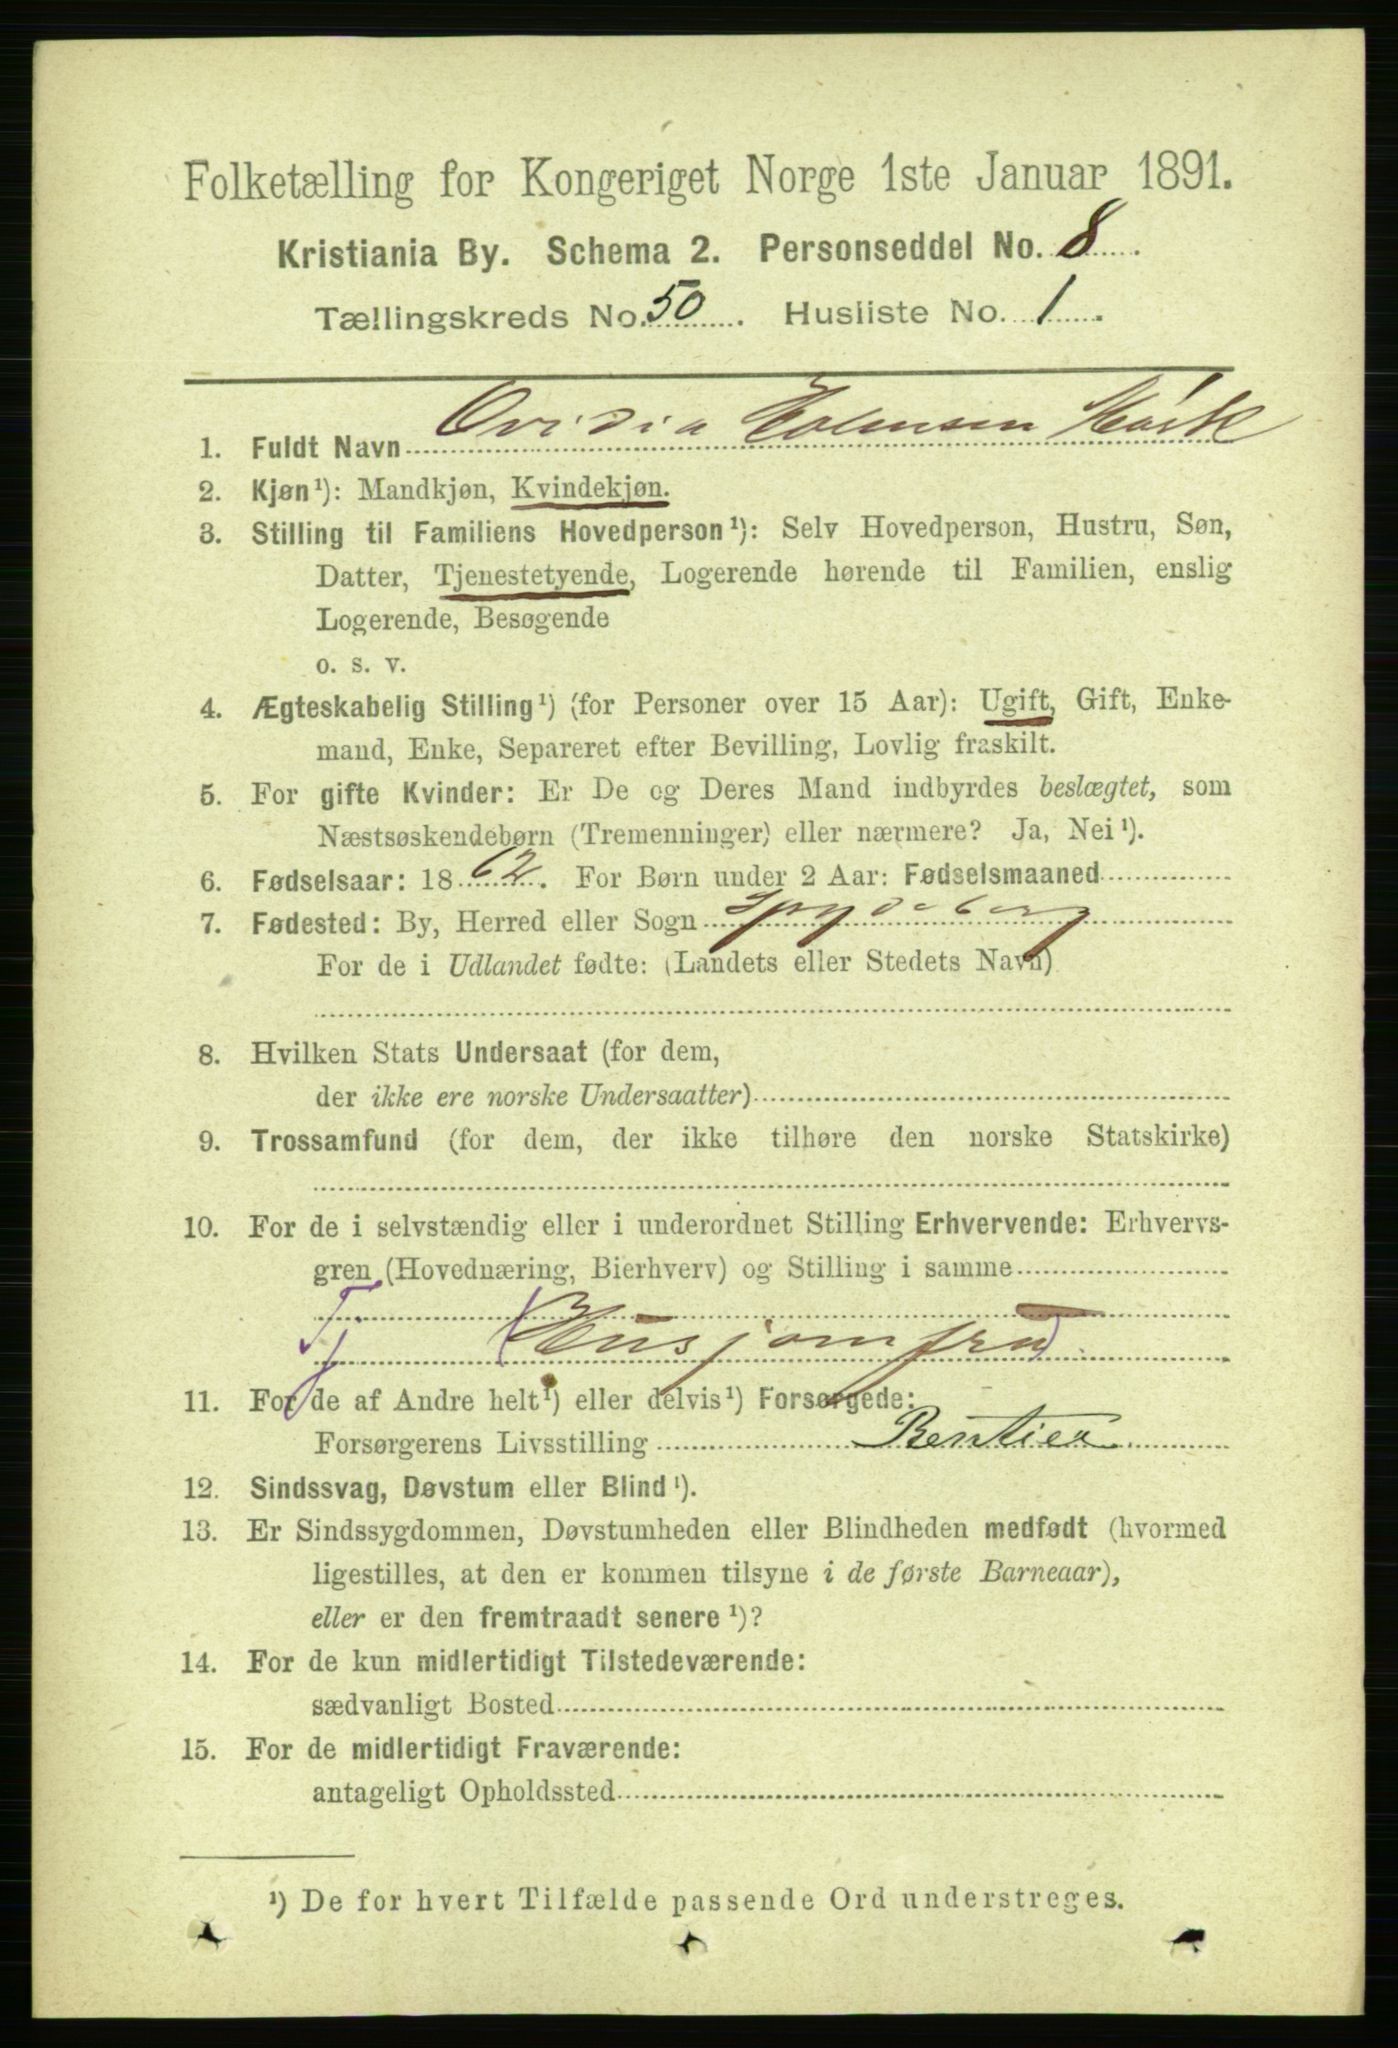 Folketælling for Kongeriget Norge 1ste Januar 1891.
Kristiania By. Schema 2. Personseddel No. 8
Tællingskreds No. 50. Husliste No. 1.
1. Fuldt Navn Ovidia Holmsen
2. Kjøn¹): Mandkjøn, Kvindekjøn.
3. Stilling til Familiens Hovedperson¹): Selv Hovedperson, Hustru, Søn,
Datter, Tjenestetyende, Logerende hørende til Familien, enslig
Logerende, Besøgende
o. s. v.
4. Ægteskabelig Stilling¹) (for Personer over 15 Aar): Ugift, Gift, Enke-
mand, Enke, Separeret efter Bevilling, Lovlig fraskilt.
5. For gifte Kvinder: Er De og Deres Mand indbyrdes beslægtet, som
Næstsøskendebørn (Tremenninger) eller nærmere? Ja, Nei¹).
6. Fødselsaar: 1862. For Børn under 2 Aar: Fødselsmaaned
7. Fødested: By, Herred eller Sogn Spydeberg
For de i Udlandet fødte: (Landets eller Stedets Navn)
8. Hvilken Stats Undersaat (for dem,
der ikke ere norske Undersaatter)
9. Trossamfund (for dem, der ikke tilhøre den norske Statskirke)
10. For de i selvstændig eller i underordnet Stilling Erhvervende: Erhvervs-
gren (Hovednæring, Bierhverv) og Stilling i samme
Tj (Husjomfru)
11. For de af Andre helt¹) eller delvis¹) Forsørgede:
Forsørgerens Livsstilling Rentier
12. Sindssvag, Døvstum eller Blind¹).
13. Er Sindssygdommen, Døvstumheden eller Blindheden medfødt (hvormed
ligestilles, at den er kommen tilsyne i de første Barneaar),
eller er den fremtraadt senere¹)?
14. For de kun midlertidigt Tilstedeværende:
sædvanligt Bosted
15. For de midlertidigt Fraværende:
antageligt Opholdssted
¹) De for hvert Tilfælde passende Ord understreges.